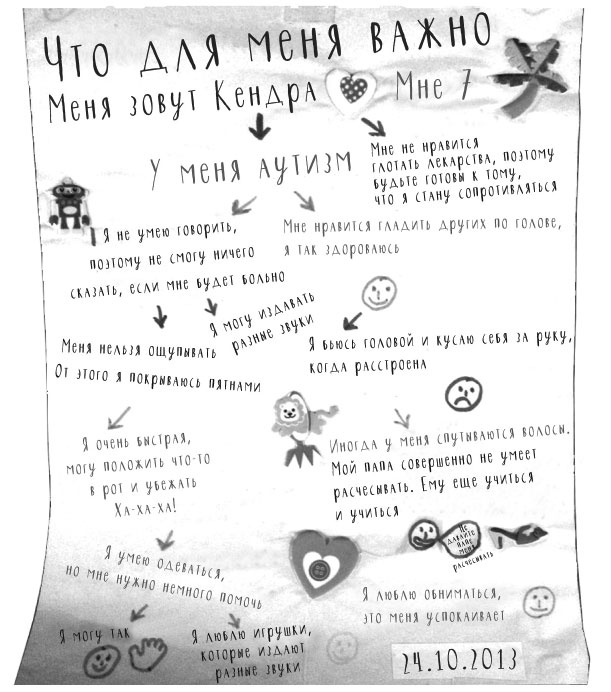 Что для меня важно
Меня зовут Кендра
Мне 7
У меня аутизм
Мне не нравится
глотать лекарства, поэтому
будьте готовы к тому,
что я стану сопротивляться
Я не умею говорить,
поэтому не смогу ничего
сказать, если мне будет больно
Мне нравится гладить других по голове,
я так здороваюсь
Я могу издавать
разные звуки
Меня нельзя ощупывать
От этого я покрываюсь пятнами
Я бьюсь головой и кусаю себя за руку,
когда расстроена
Я очень быстрая,
могу положить что-то
в рот и убежать
Ха-ха-ха!
Иногда у меня спутываются волосы.
Мой папа совершенно не умеет
расчесывать. Ему еще учиться
и учиться
Не
давайте
папе
меня
расчесывать
Я умею одеваться,
но мне нужно немного помочь
Я люблю обниматься,
это меня успокаивает
Я могу так
Я люблю игрушки,
которые издают
разные звуки
24.10.2013